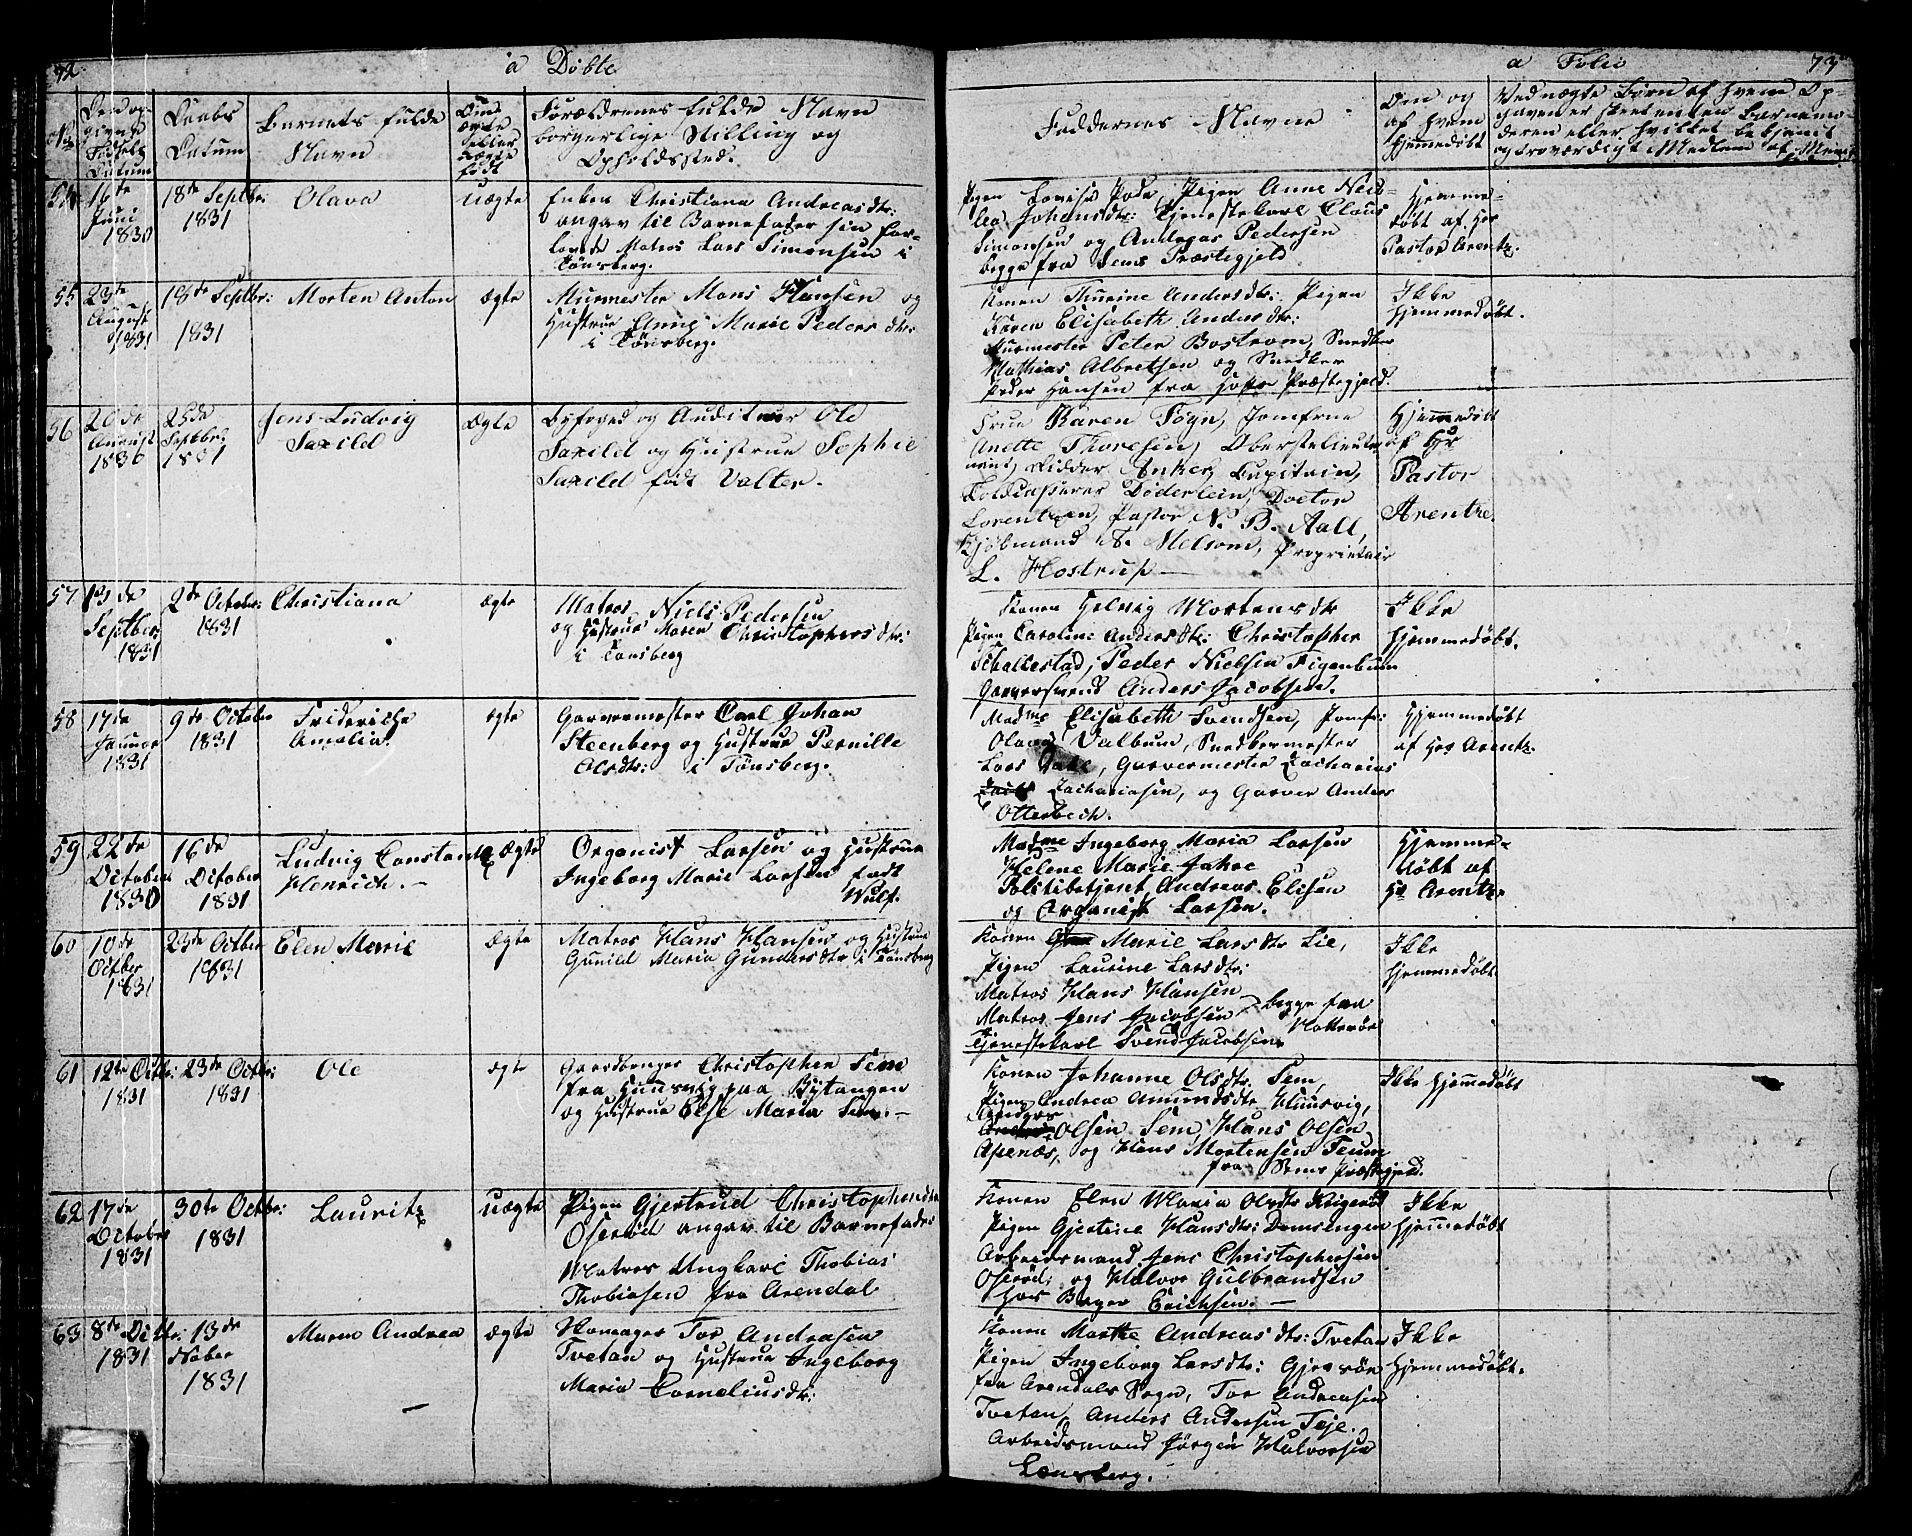 72
a Døbte
No
Den opgivne Fødsels Datum
Daabs Datum
Barnets fulde Navn
Om ægte eller uægte født
Forældrenes fulde Navn
borgerlige Stilling og
Opholdssted.
54
16de Juni 1830
18de Septbr: 1831
Olava
uægte
Enken Christiana Andreasdtr:
angav til Barnefader sin for-
lovede Matros Lars Simensen i
Tønsberg.
55
23de August 1831
18de Septbr: 1831
Morten Anton
Ægte
Murmester Mons Hansen og
Hustrue Anne Marie Pedersdtr:
i Tönsberg.
56
26de August 1830
25de Septbr: 1831
Jens Ludvig
Saxild
Ægte
Byfoged og Auditeur Ole
Saxild og Hustrue Sophie
Saxild født Valter.
57
13de Septber 1831
2de October: 1831
Christiana
Ægte
Matros Niels Pedersen
og Hustrue Maren Christophersdtr:
i Tönsberg
58
17de Januar 1831
9de October 1831
Friderikke
Amalia.
Ægte
Garvermester Carl Johan
Steenberg og Hustrue Pernille
Olsdtr: i Tønsberg.
59
22de October 1830
16de October 1831
Ludvig Constantz
Henrich. -
Ægte
Organist Larsen og Hustrue
Ingeborg Marie Larsen født
Wulf.
60
10de Octber 1831
23de Octber 1831
Elen Marie
Ægte
Matros Hans Hansen og Hustrue
Gunild Maria Gundersdtr i Tönsberg
61
12te Octbr: 1831
23de Octbr: 1831
Ole
ægte
Gaardbruger Christopher Sem
fra Huusvig paa Bÿtangen
og Hustrue Else Maria Sem. -
62
17de October 1831
30te Octbr: 1831
Lauritz
uægte
Pigen Gjertrud Christophersdtr
Oserød angav til Barnefader
Matros Ungkarl Thobias
Thobiasen fra Arendal
63
8de Octbr: 1831
13de Nober 1831
Maren Andrea
Ægte
Tor Andreasen
Tvetan og Hustrue Ingeborg
Maria Corneliusdtr:
a Folio
73
Faddernes Navne
Om og
af hvem
hjemmedøbt
Ved uægte Børn af hvem Op-
gaven er skeet enten Barnemo-
deren eller hvilket bekjendt
og troværdigt Medlem af Menig
Pigen Lovise Pode, Pigen Anne Nico-
lea Johansdtr: Tjenestekarl Claus
Simonsen og Andreas Pedersen
begge fra Sems Præstegjeld
Hjemme-
døbt af Hr
Pastor Arentz.
Konen Thurine Andersdtr: Pigen
Karen Elisabeth Andersdtr:
Murmester Peter Bostrøm, Snedker
Mathias Albretsen og Snedker
Peder Hansen fra Hofs Præstegjeld.
Ikke
Hjemmedøbt.
Frue Karen Fogn, Jomfrue
Anette Thoresen, Oberstelieute-
nant, Ridder Anker, Capitain,
Toldinspecteur Døderlein, Doctor
Lorentzen, Pastor N. B. Aall,
Kjøbmand T. Melsom, Proprietair
L. Hostrup -
Hjemmedøbt
af Hr
Pastor
Arentz.
Konen Helvig Mortensdtr
Pigen Caroline Andersdtr: Christopher
Schallestad, Peder Nielsen Figenbum
Garversvend Anders Jacobsen.
Ikke
Hjemmedøbt.
Madme Elisabeth Svendsen, Jomfr:
Olava Valbum, Snedkermester
Lars Dahl, Garvermester Zacharias
Zachariasen, og Garver Anders
Otterbech.
Hjemmedøbt
af Hr Arentz.
Madme Ingeborg Maria Larsen
Helene Marie Jahre
Politibetjent Andreas Elisen
og Organist Larsen.
Hjemme-
døbt af
Hr Arentz
Konen Marie Larsdtr Lie,
Pigen Laurine Larsdtr:
Matros Hans Hansen
Matros Jens Jacobsen begge fra
Nøtterøe
Tjenestekarl Svend Jacobsen
Ikke
Hjemmedøbt
Konen Johanne Olsdtr: Sem,
Pigen Andrea Amundsdtr Huusvig,
Anders
Olsen Sem, Hans Olsen
Apenæs, og Hans Mortensen Teum
fra Sems Præstegjeld.
Ikke Hjemmedøbt
Konen Elen Maria Olsdtr
Pigen Gjertine Hansdtr:
Arbeidsmand Jens Christophersen
Oserød, og Halvor Gulbrandsen
hos Bager Erichsen. -
Ikke
Hjemmedøbt
Konen Marthe Andreasdtr: Tvetan
Pigen Ingeborg Larsdtr:
fra Arendals Sogn, Tor Andreasen
Tvetan, Anders Andersen Teje.
Arbeidsmand Jørgen Halvorsen
Tønsberg.
Ikke
Hjemmedøbt.